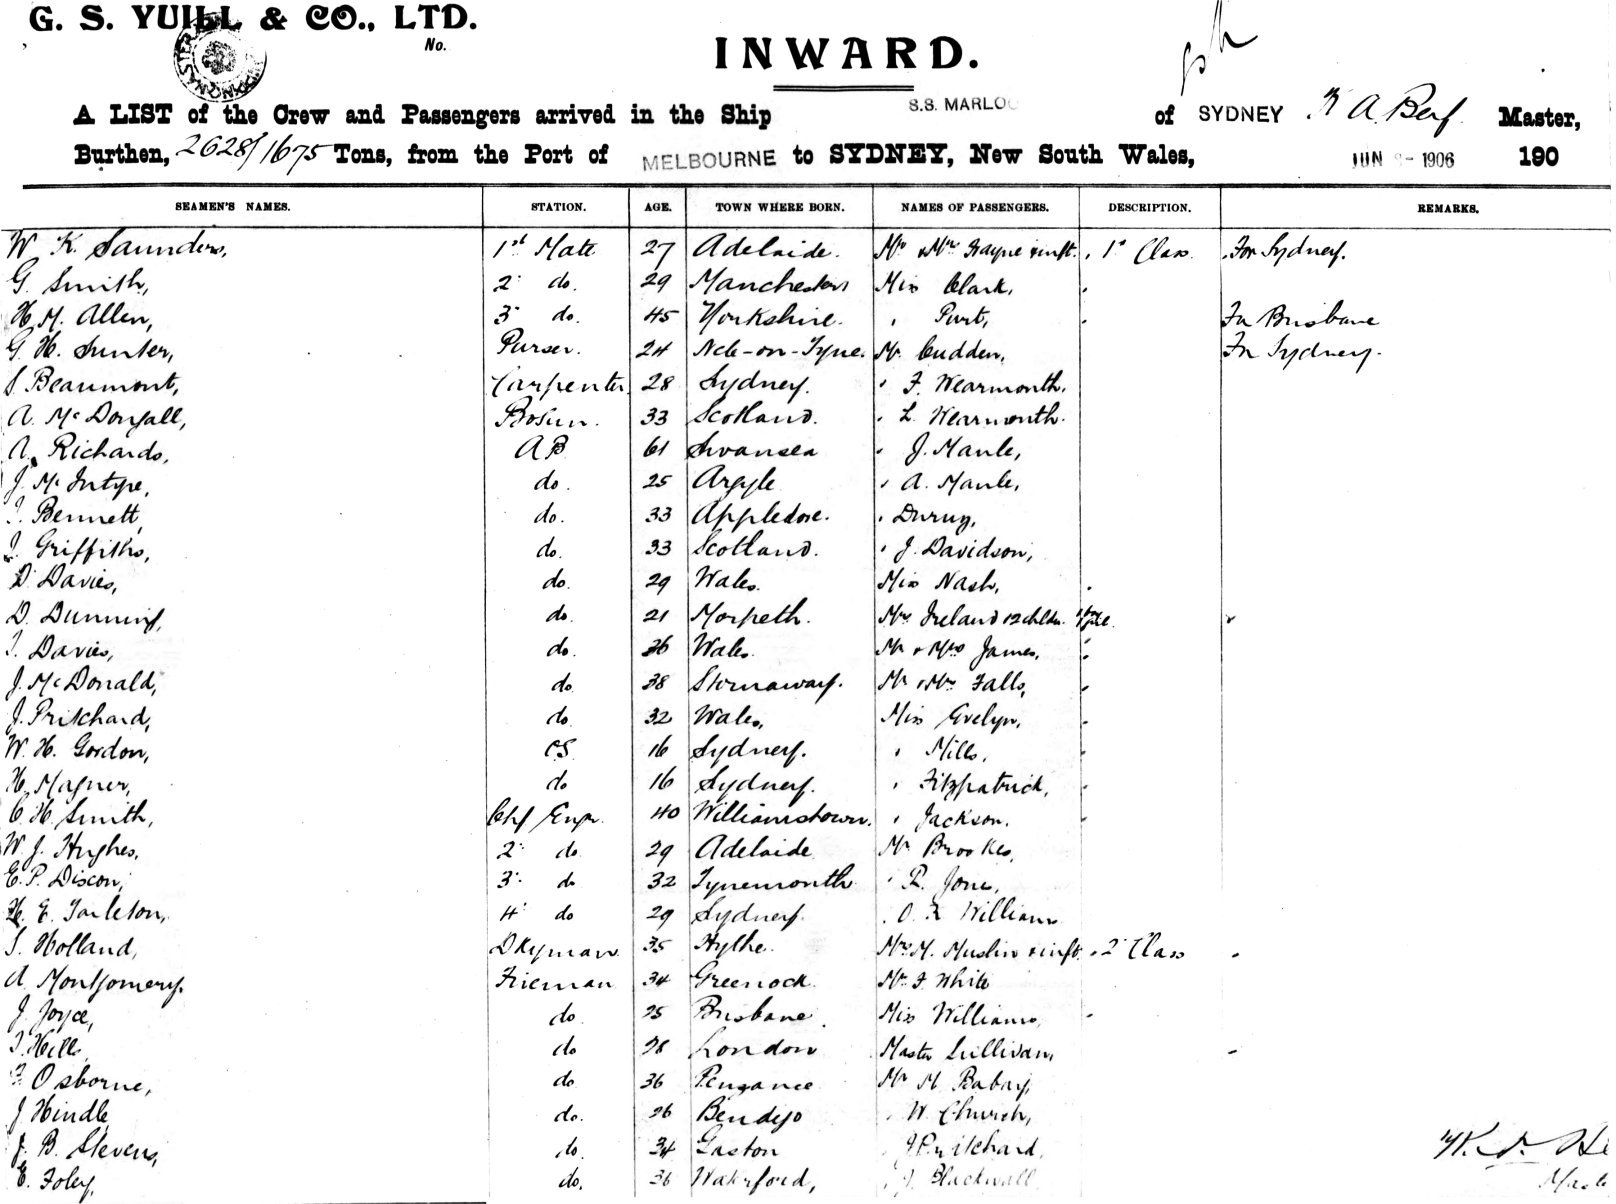 G. S. YUILL & CO., LTD.
No.
INWARD.
A LIST of the Crew and Passengers arrived in the Ship S.S. MARLOO of SYDNEY Master,
Burthen, 2628/1675 Tons, from the Port of MELBOURNE to SYDNEY, New South Wales, JUN 1906 190
SEAMEN'S NAMES. STATION. AGE. TOWN WHERE BORN. NAMES OF PASSENGERS. DESCRIPTION. REMARKS.
W. K. Saunders, 1st Mate 27 Adelaide. Mr & Mrs & inft. 1st Class For Sydney.
G. Smith, 2" do. 29 Manchester Miss Clark,
H. M. Allen, 3" do. 45 Yorkshire. " Purt, For Brisbane
G. H. Sunter, Purser. 24 Ncle-on-Tyne. Mr Cudden, For Sydney.
S. Beaumont, Carpenter 28 Sydney. " F. Wearmouth,
A. McDougall, Bosun. 33 Scotland. " L. Wearmouth.
A. Richards, AB 61 Swansea " J. Maule,
J. McIntyre, do. 25 Argyle " A. Maule,
Bennett, do. 33 Appledore. "
J. Griffiths, do. 33 Scotland. " J. Davidson,
D. Davies, do. 29 Wales. Miss Nash,
D. Dunning, do. 21 Morpeth. Mrs Ireland & 2 chldn.
Davies, do. 36 Wales. Mr & Mrs James,
J. McDonald, do. 38 Stornaway. Mr & Mrs Falls,
J. Pritchard, do. 32 Wales. Miss Evelyn,
W. H. Gordon, OS 16 Sydney. " Mills,
H. Magner, do 16 Sydney. " Fitzpatrick,
C. H. Smith, Chf Engr. 40 Williamstown. " Jackson.
W. J. Hughes, 2" do 29 Adelaide Mr Brookes,
E. P. Discon, 3" do 32 Tynemouth " R. Jones,
H. E. Tarleton, 4" do 29 Sydney. " Williams
S. Holland, Dkyman 35 Hythe. Mrs M. Muslin & inft. 2" Class
A. Montgomery, Fireman 34 Greenock. Mr F. White
J. Joyce, do. 25 Brisbane. Miss Williams,
Hills do 28 London Master Sullivan,
Osborne, do. 36 Penzance Mr M.
J. Hindle, do. 26 Bendigo " W. Church,
J. B. Stevens, do. 34 Gaston " J. Pritchard,
E. Foley, do. 36 Waterford, " Blackwall